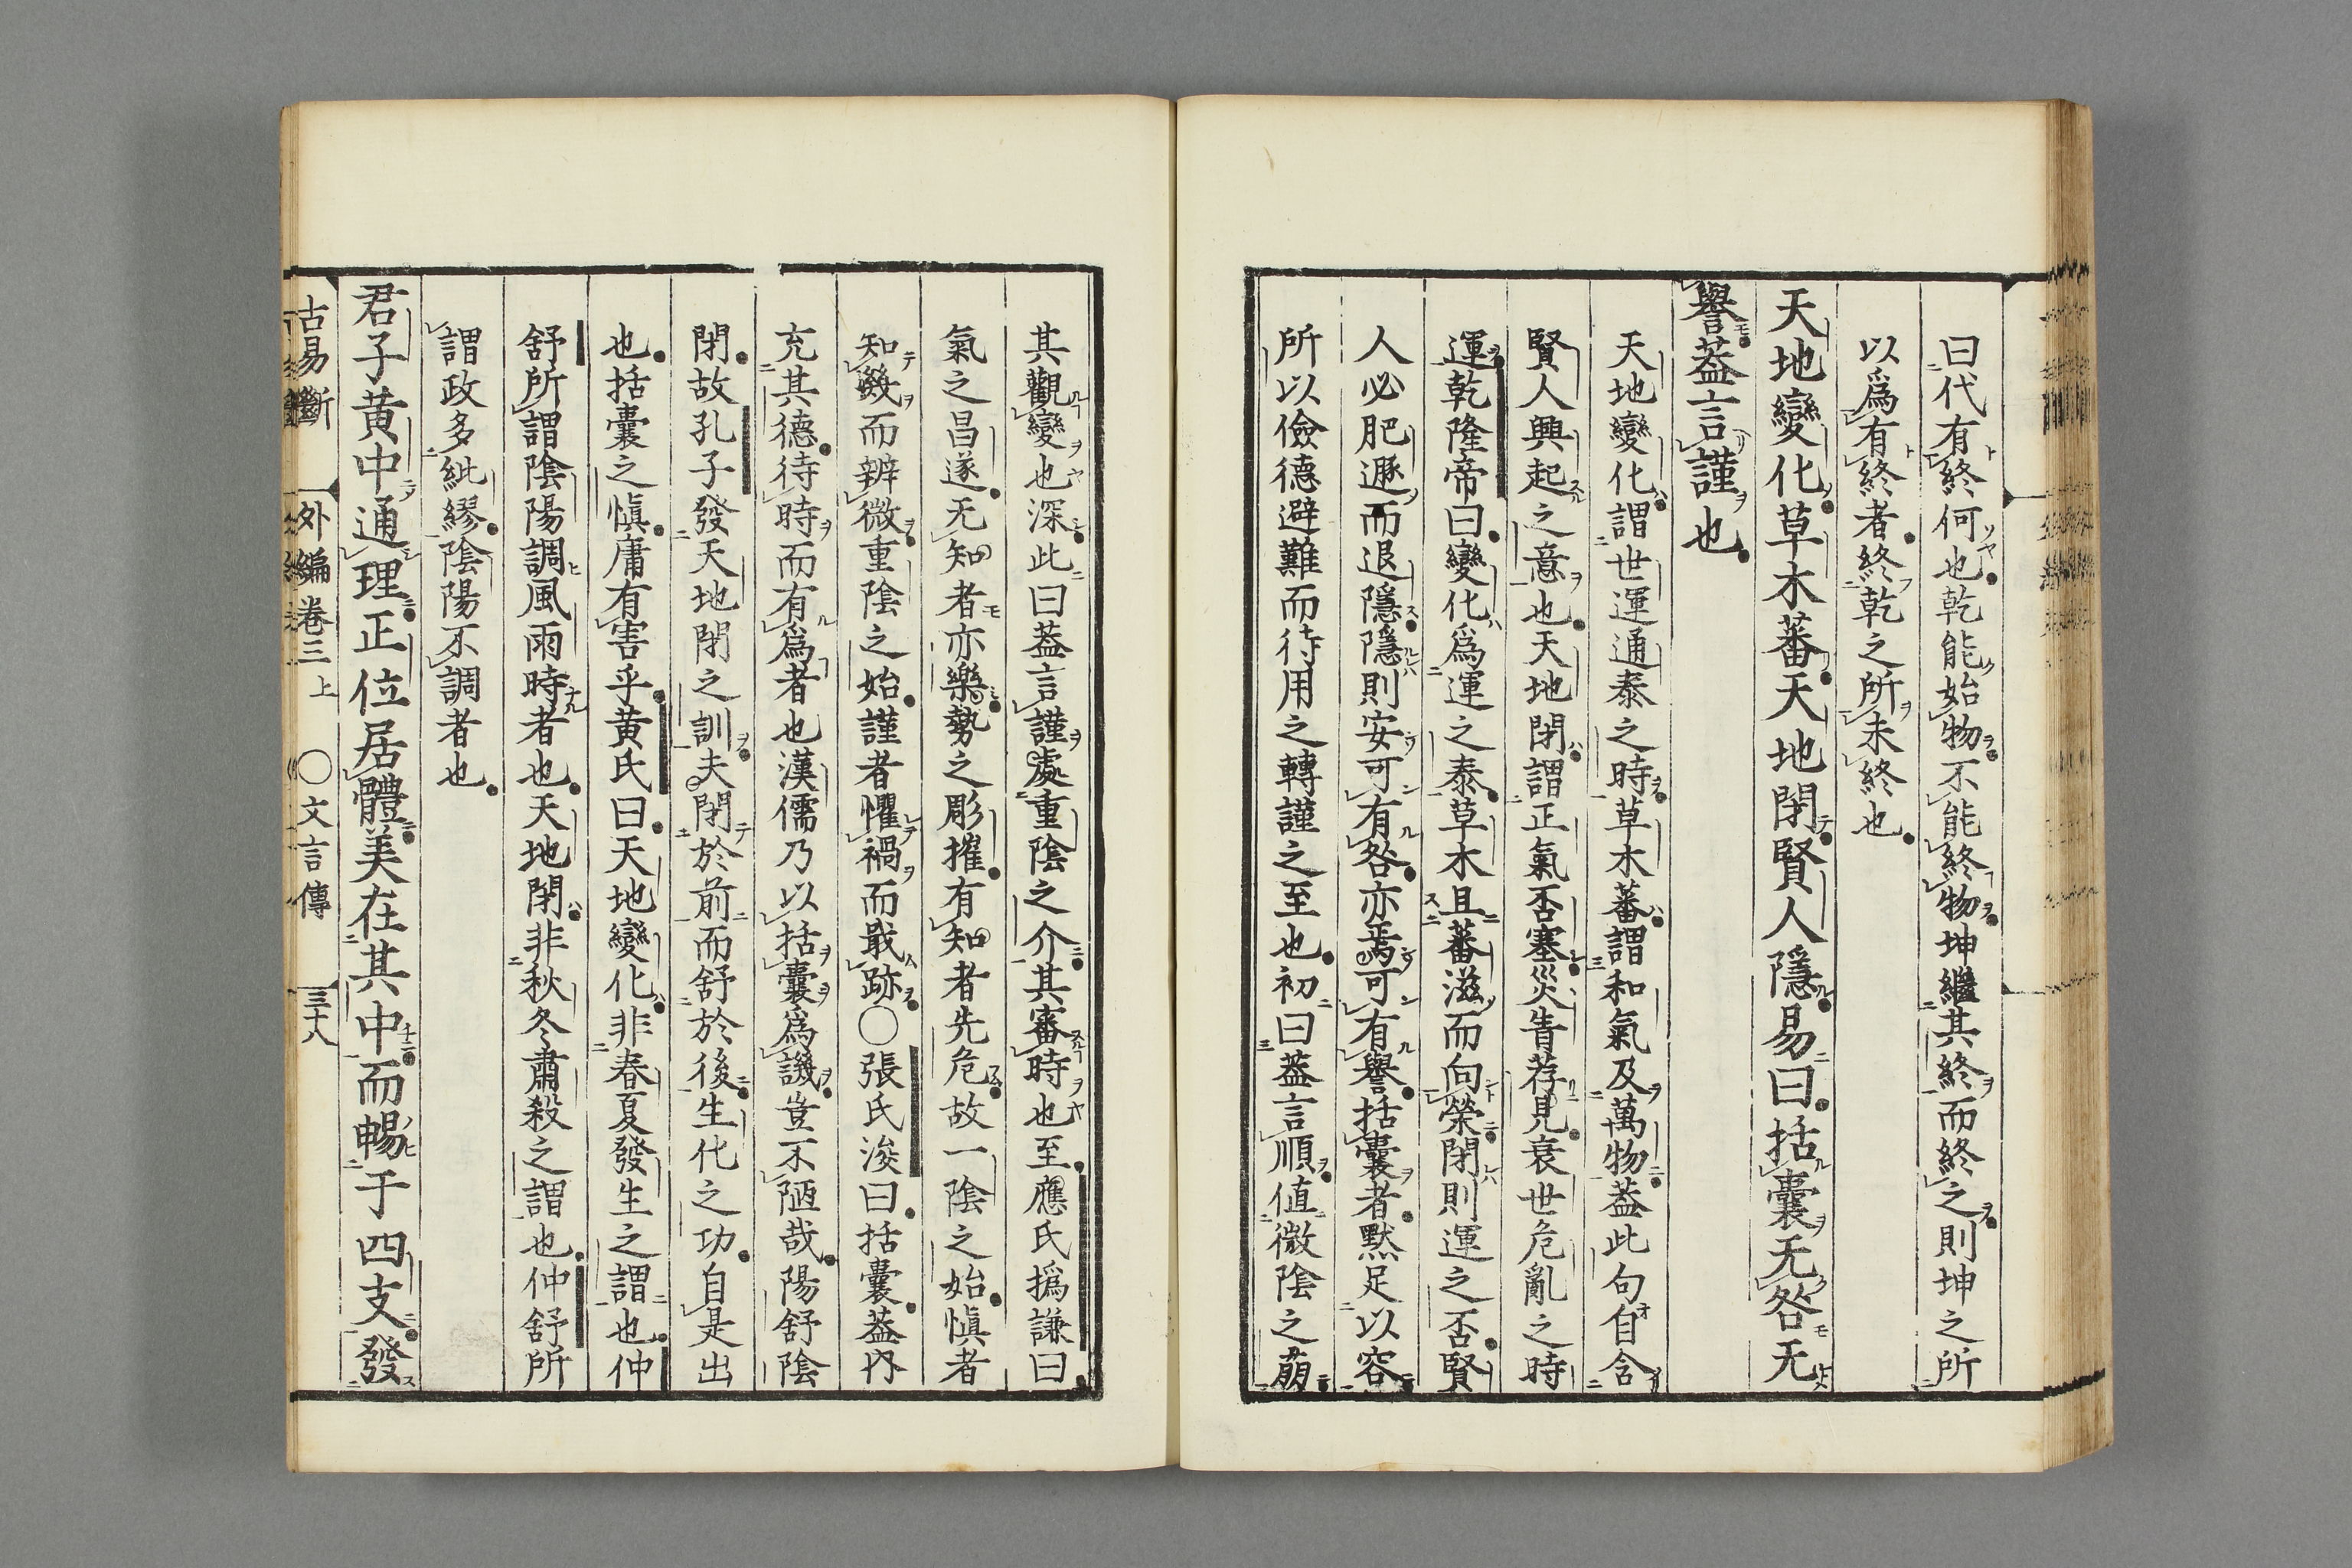 曰代有終何也乾能始物不能終物坤繼其終而終之則坤之所
以爲有終者終乾之所未終也
天地變化草木蕃天地閉賢人隱易曰括囊无咎无
譽蓋言謹也
天地變化謂世運通泰之時草木蕃謂和氣及萬物蓋此句自含
賢人興起之意也天地閉謂正氣否塞災眚荐見衰世危亂之時
運乾隆帝曰變化爲運之泰草木且蕃滋而向榮閉則運之否賢
人必肥遯而退隱隱則安可有咎亦焉可有譽括囊者默足以容
所以儉德避難而待用之轉謹之至也初曰蓋言順値微陰之萠
其觀變也深此曰蓋言謹處重陰之介其審時也至應氏撝謙曰
氣之昌遂无知者亦樂勢之彫摧有知者先危故一陰之始愼者
知幾而辨微重陰之始謹者懼禍而戢跡〇張氏浚曰括囊蓋內
充其德待時而有爲者也漢儒乃以括囊爲譏豈不陋哉陽舒陰
閉故孔子發天地閉之訓夫閉於前而舒於後生化之功自是出
也括囊之愼庸有害乎黃氏曰天地變化非春夏發生之謂也仲
舒所謂陰陽調風雨時者也天地閉非秋冬肅殺之謂也仲舒所
謂政多紕繆陰陽不調者也
君子黃中通理正位居體美在其中而暢于四支發
古易斷 外編卷三上 〇文言傳 三十八